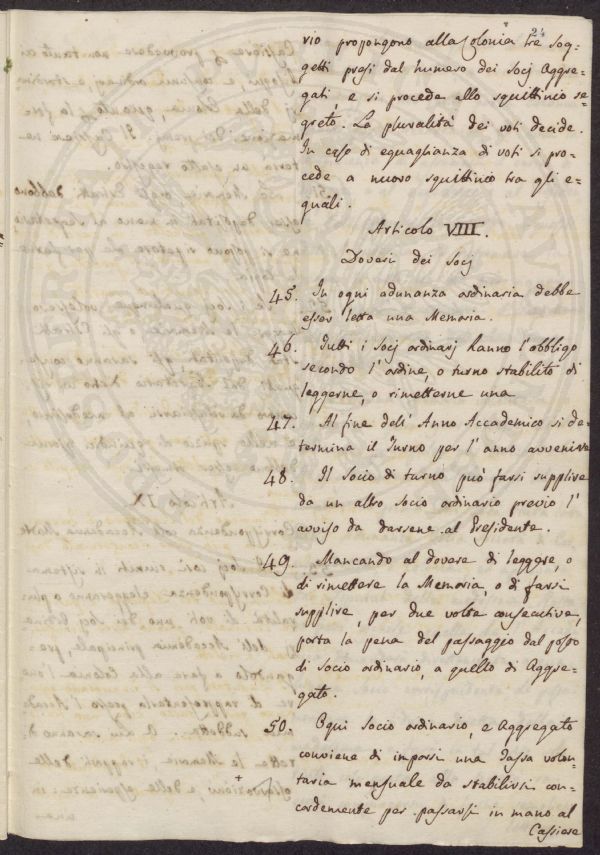 24
rio propongono alla Colonia tre Sog=
getti presi dal numero dei Socj Aggre=
gati, e si procede allo squittinio se=
greto. La pluralità dei voti decide.
In caso di eguaglianza di voti si pro=
cede a nuovo squittinio tra gli e=
guali.
Articolo VIII.
Doveri dei Socj
45. In ogni adunanza ordinaria debbe
esser letta una Memoria.
46. Tutti i Socj ordinarj hanno l'obbligo
secondo l'ordine, o turno stabilito di
leggerne, o rimetterne una
47. Al fine dell' Anno Accademico si de=
termina il Turno per l' anno avvenire
48. Il Socio di turno può farsi supplire
da un altro Socio ordinario previo l'
avviso da darsene al Presidente.
49. Mancando al dovere di leggere, o
di rimettere la Memoria, o di farsi
supplire, per due volte consecutive,
porta la pena del passaggio dal posto
di Socio ordinario, a quello di Aggre=
gato.
50. Ogni Socio ordinario, e Aggregato
conviene di imporsi una Tassa volon=
taria mensuale da stabilirsi con=
cordemente per passarsi in mano al
Cassiere